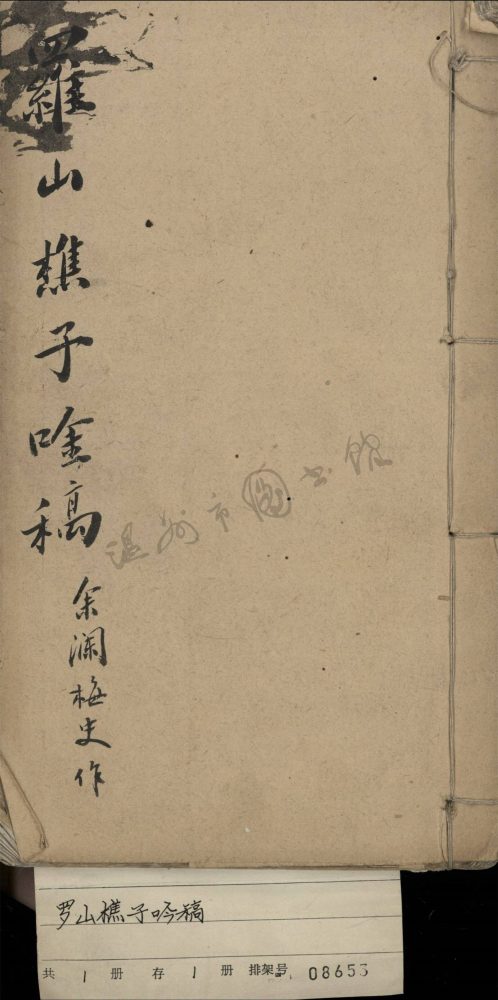 羅山樵子唫稿
余瀾梅史作
温州市圖书館
罗山樵子吟稿
共 1 册 存 1 册 排架号 08653